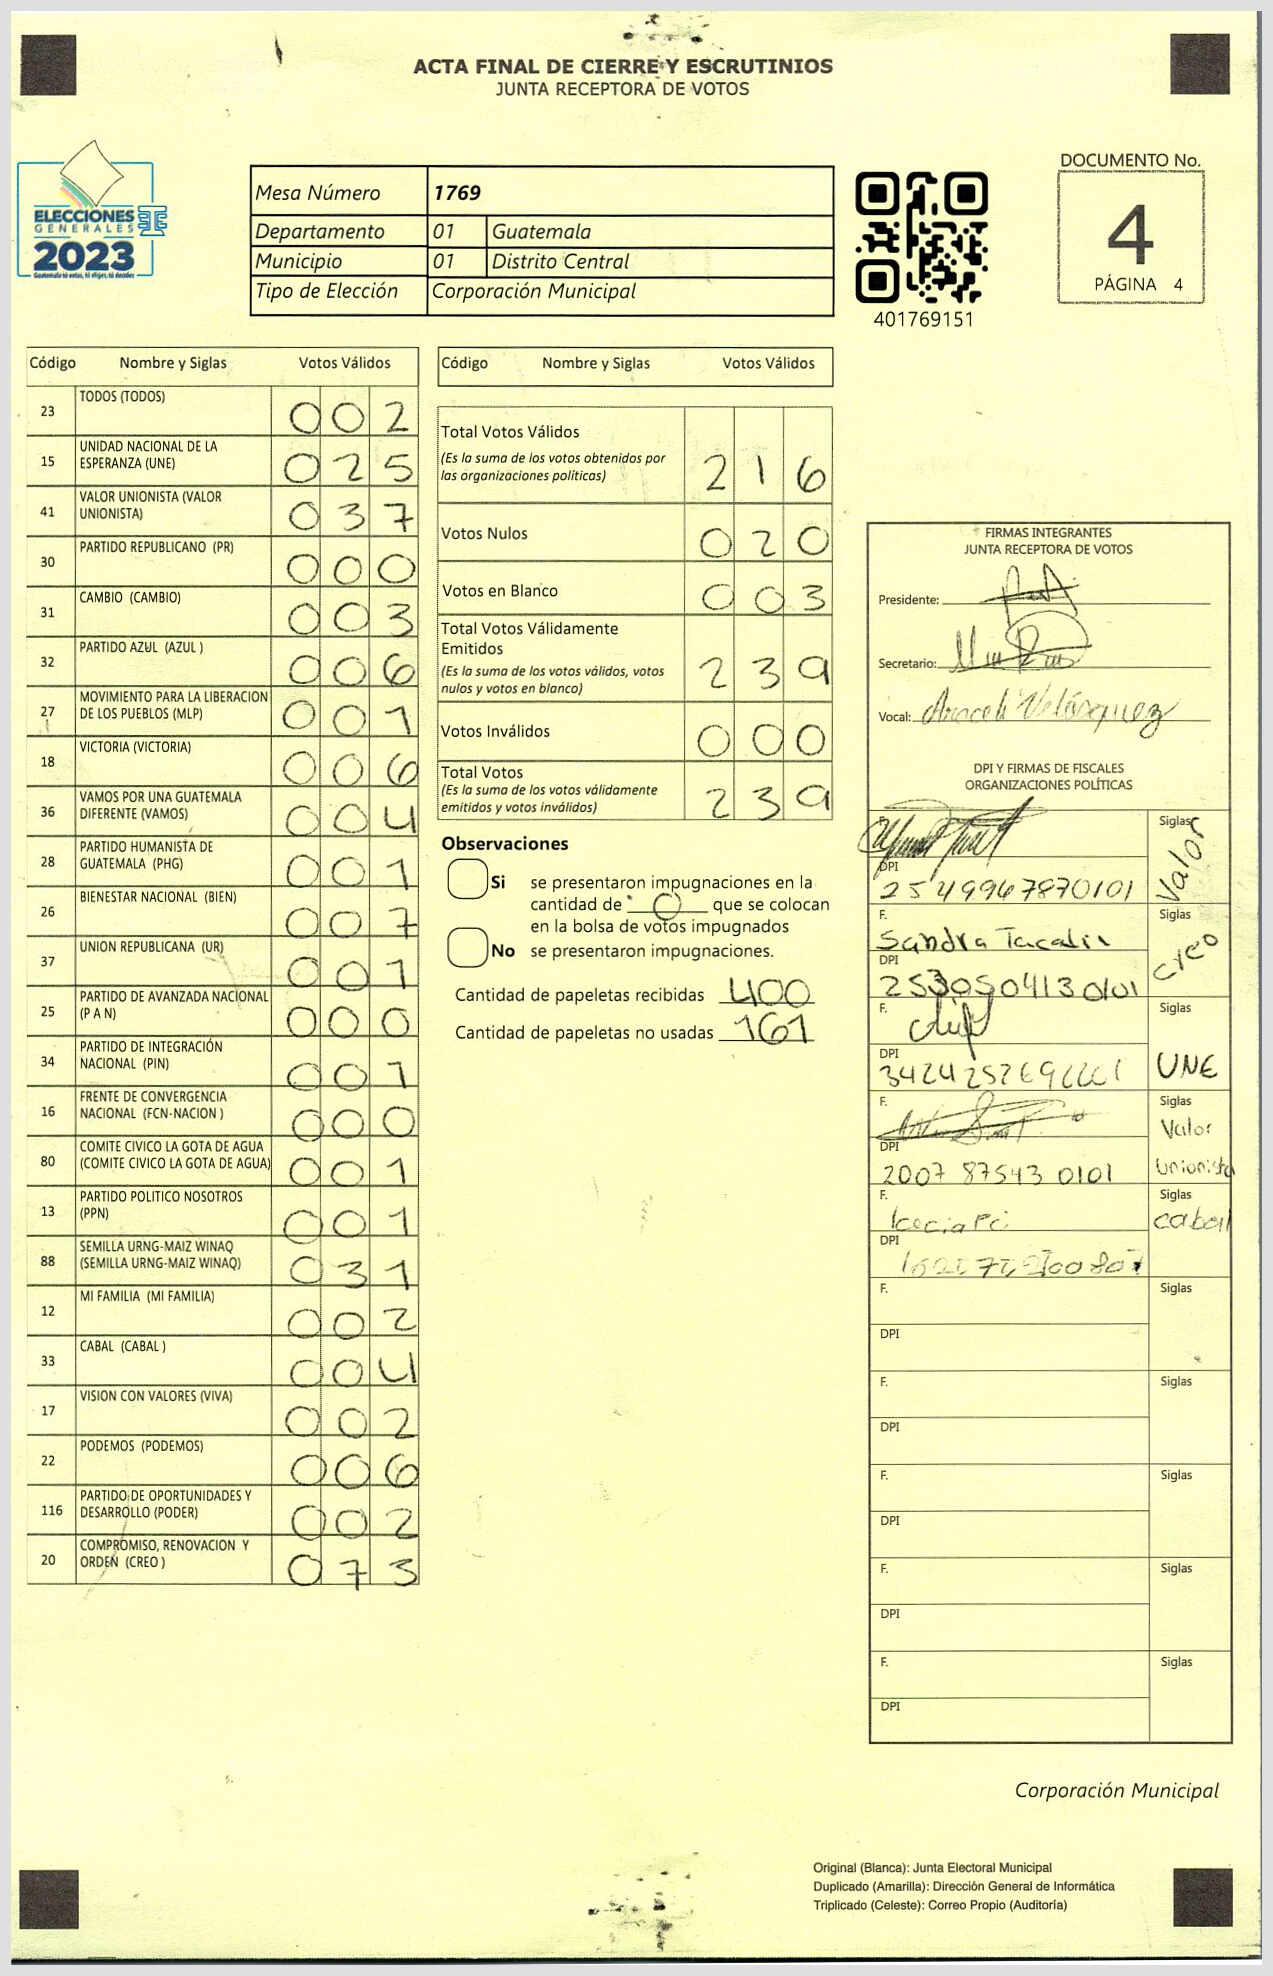 ACTA FINAL DE CIERRE Y ESCRUTINIOS
JUNTA RECEPTORA DE VOTOS
ELECCIONES
GENERALES
2023
Guatemala tú votas, tú eliges, tú decides
Mesa Número 1769
Departamento 01 Guatemala
Municipio 01 Distrito Central
Tipo de Elección Corporación Municipal
401769151
DOCUMENTO No.
4
PÁGINA 4
Código Nombre y Siglas Votos Válidos
23 TODOS (TODOS) 002
15 UNIDAD NACIONAL DE LA
ESPERANZA (UNE) 025
41 VALOR UNIONISTA (VALOR
UNIONISTA) 037
30 PARTIDO REPUBLICANO (PR) 000
31 CAMBIO (CAMBIO) 003
32 PARTIDO AZUL (AZUL ) 006
27 MOVIMIENTO PARA LA LIBERACION
DE LOS PUEBLOS (MLP) 001
18 VICTORIA (VICTORIA) 006
36 VAMOS POR UNA GUATEMALA
DIFERENTE (VAMOS) 004
28 PARTIDO HUMANISTA DE
GUATEMALA (PHG) 001
26 BIENESTAR NACIONAL (BIEN) 007
37 UNION REPUBLICANA (UR) 001
25 PARTIDO DE AVANZADA NACIONAL
(P A N) 000
34 PARTIDO DE INTEGRACIÓN
NACIONAL (PIN) 001
16 FRENTE DE CONVERGENCIA
NACIONAL (FCN-NACION ) 000
80 COMITE CIVICO LA GOTA DE AGUA
(COMITE CIVICO LA GOTA DE AGUA) 001
13 PARTIDO POLITICO NOSOTROS
(PPN) 001
88 SEMILLA URNG-MAIZ WINAQ
(SEMILLA URNG-MAIZ WINAQ) 031
12 MI FAMILIA (MI FAMILIA) 002
33 CABAL (CABAL ) 004
17 VISION CON VALORES (VIVA) 002
22 PODEMOS (PODEMOS) 006
116 PARTIDO DE OPORTUNIDADES Y
DESARROLLO (PODER) 002
20 COMPROMISO, RENOVACION Y
ORDEN (CREO ) 073
Código Nombre y Siglas Votos Válidos
Total Votos Válidos
(Es la suma de los votos obtenidos por
las organizaciones políticas) 216
Votos Nulos 020
Votos en Blanco 003
Total Votos Válidamente
Emitidos
(Es la suma de los votos válidos, votos
nulos y votos en blanco) 239
Votos Inválidos 000
Total Votos
(Es la suma de los votos válidamente
emitidos y votos inválidos) 239
Observaciones
Si se presentaron impugnaciones en la
cantidad de 0 que se colocan
en la bolsa de votos impugnados
No se presentaron impugnaciones.
Cantidad de papeletas recibidas 400
Cantidad de papeletas no usadas 161
FIRMAS INTEGRANTES
JUNTA RECEPTORA DE VOTOS
Presidente:
Secretario:
Vocal: Araceli Velásquez
DPI Y FIRMAS DE FISCALES
ORGANIZACIONES POLÍTICAS
F. Siglas Valor
DPI
2549967870101
F. Sandra Tacatic Siglas Creo
DPI
2530504130101
F. Siglas
DPI UNE
F. Siglas
Valor
DPI
2007 87543 0101 Unionista
F. Siglas
cabal
DPI
F. Siglas
DPI
F. Siglas
DPI
F. Siglas
DPI
F. Siglas
DPI
F. Siglas
DPI
Corporación Municipal
Original (Blanca): Junta Electoral Municipal
Duplicado (Amarilla): Dirección General de Informática
Triplicado (Celeste): Correo Propio (Auditoría)